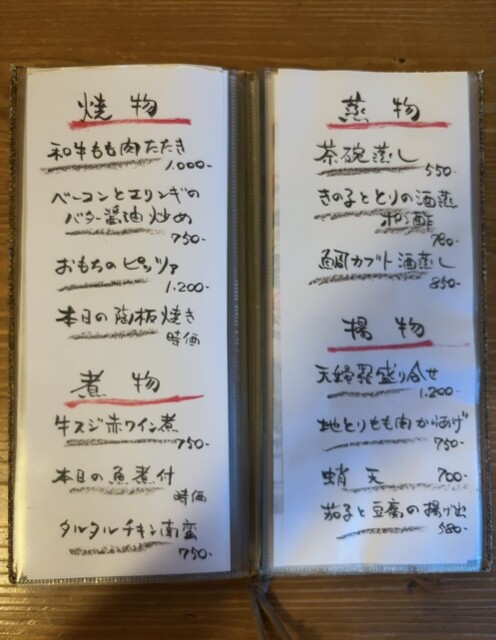 焼物
和牛もも肉たたき
1.000-
ベーコンとエリンギの
バター醤油炒め
750-
おもちのピッツァ
1.200-
本日の陶板焼き
時価
煮物
牛スジ赤ワイン煮
750-
本日の魚煮付
時価
タルタルチキン南蛮
750-
蒸物
茶碗蒸し
550-
きの子ととりの酒蒸
ポン酢
780-
鯛カブト酒蒸し
850-
揚物
天婦羅盛り合せ
1.200-
地とりもも肉からあげ
750-
蛸天 700-
茄子と豆腐の揚げ出
580-